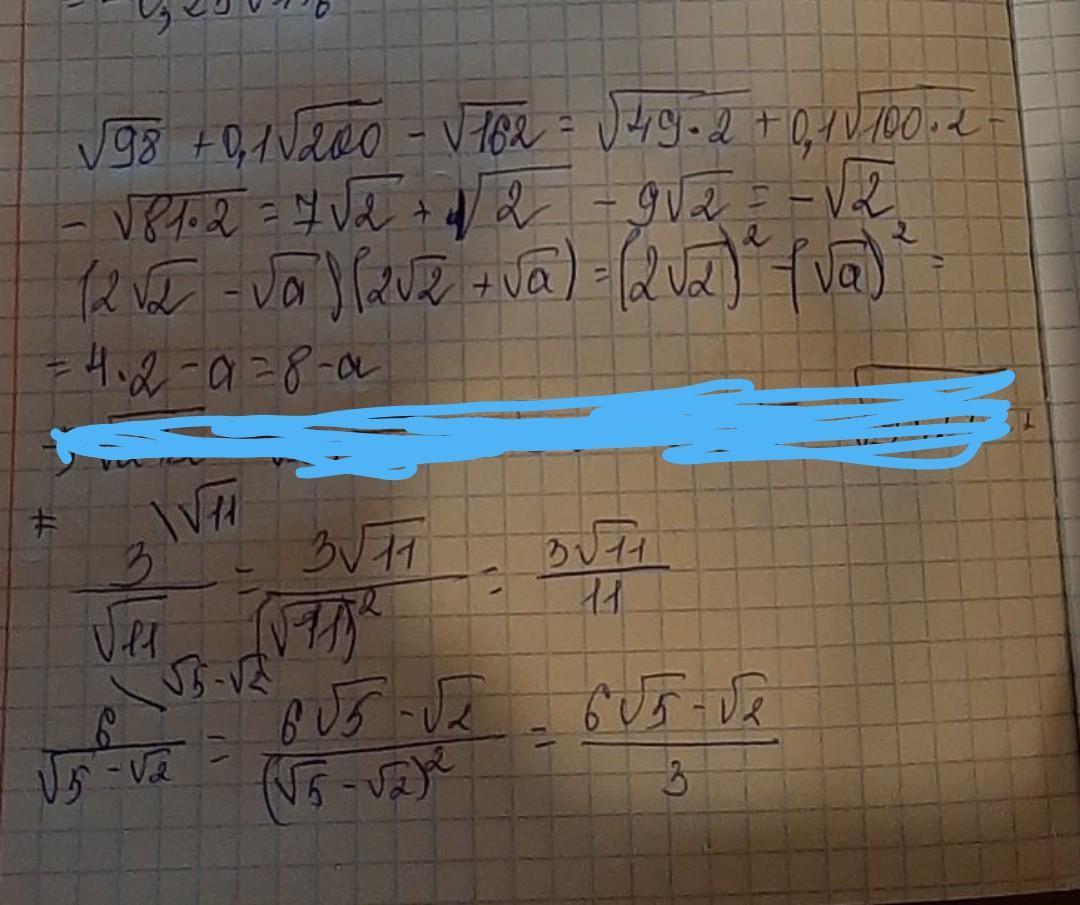 √98 + 0,1√200 - √162 = √49·2 + 0,1√100·2 -
- √81·2 = 7√2 + √2 - 9√2 = -√2
(2√2 - √a)(2√2 + √a) = (2√2)² - (√a)² =
= 4·2 - a = 8 - a
≠ 3/√11 \√11 = 3√11/(√11)² = 3√11/11
6/(√5 - √2) \√5 - √2 = (6√5 - √2)/(√5 - √2)² = (6√5 - √2)/3